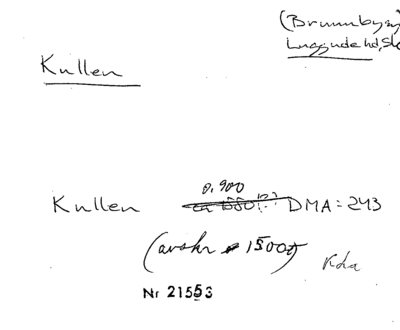 (Brunnby sn
Luggude hd, Sk
Kullen
0.900
Kullen ca 1550?? DMA = 243
(avskr 1500t)
Kda
Nr 21553